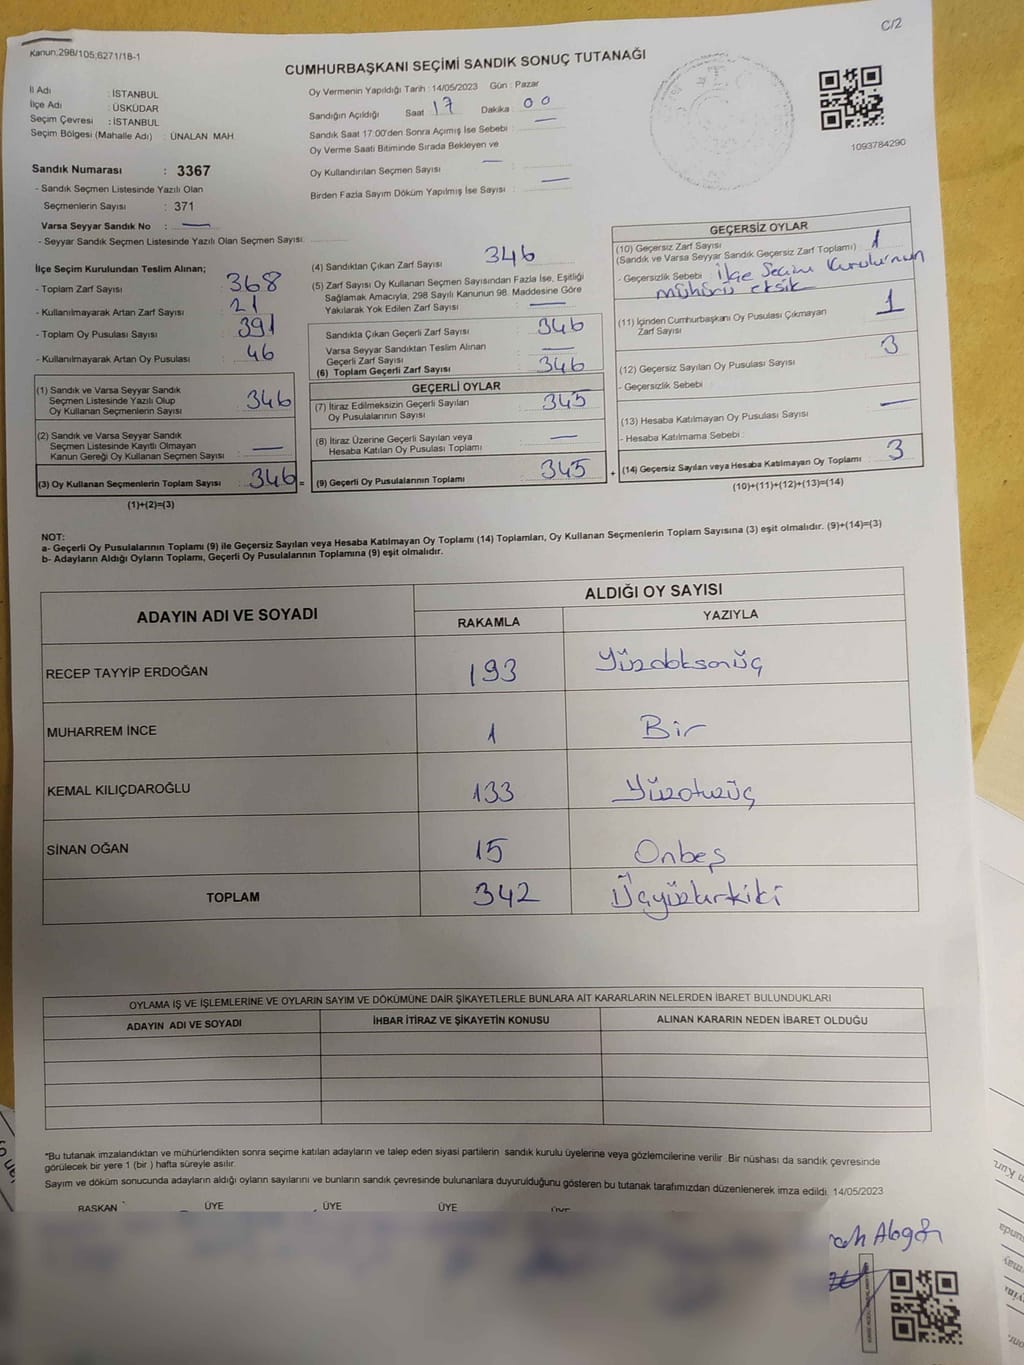 C/2
Kanun;298/105;6271/18-1
CUMHURBAŞKANI SEÇİMİ SANDIK SONUÇ TUTANAĞI
İl Adı : İSTANBUL
İlçe Adı : ÜSKÜDAR
Seçim Çevresi : İSTANBUL
Seçim Bölgesi (Mahalle Adı) : ÜNALAN MAH.
Oy Vermenin Yapıldığı Tarih : 14/05/2023 Gün : Pazar
Sandığın Açıldığı Saat 17 Dakika : 00
Sandık Saat 17:00'den Sonra Açımış İse Sebebi : —
Oy Verme Saati Bitiminde Sırada Bekleyen ve
Oy Kullandırılan Seçmen Sayısı : —
Birden Fazla Sayım Döküm Yapılmış İse Sayısı : —
1093784290
Sandık Numarası : 3367
- Sandık Seçmen Listesinde Yazılı Olan
Seçmenlerin Sayısı : 371
Varsa Seyyar Sandık No : —
- Seyyar Sandık Seçmen Listesinde Yazılı Olan Seçmen Sayısı:
İlçe Seçim Kurulundan Teslim Alınan;
- Toplam Zarf Sayısı : 368
- Kullanılmayarak Artan Zarf Sayısı : 21
- Toplam Oy Pusulası Sayısı : 391
- Kullanılmayarak Artan Oy Pusulası : 46
(1) Sandık ve Varsa Seyyar Sandık
Seçmen Listesinde Yazılı Olup
Oy Kullanan Seçmenlerin Sayısı : 346
(2) Sandık ve Varsa Seyyar Sandık
Seçmen Listesinde Kayıtlı Olmayan
Kanun Gereği Oy Kullanan Seçmen Sayısı : —
(3) Oy Kullanan Seçmenlerin Toplam Sayısı : 346 =
(1)+(2)=(3)
(4) Sandıktan Çıkan Zarf Sayısı : 346
(5) Zarf Sayısı Oy Kullanan Seçmen Sayısından Fazla İse, Eşitliği
Sağlamak Amacıyla, 298 Sayılı Kanunun 98. Maddesine Göre
Yakılarak Yok Edilen Zarf Sayısı : —
Sandıkta Çıkan Geçerli Zarf Sayısı : 346
Varsa Seyyar Sandıktan Teslim Alınan
Geçerli Zarf Sayısı : —
(6) Toplam Geçerli Zarf Sayısı : 346
GEÇERLİ OYLAR
(7) İtiraz Edilmeksizin Geçerli Sayılan
Oy Pusulalarının Sayısı : 345
(8) İtiraz Üzerine Geçerli Sayılan veya
Hesaba Katılan Oy Pusulası Toplamı : —
(9) Geçerli Oy Pusulalarının Toplamı : 345 +
GEÇERSİZ OYLAR
(10) Geçersiz Zarf Sayısı
(Sandık ve Varsa Seyyar Sandık Geçersiz Zarf Toplamı) : 1
- Geçersizlik Sebebi : İlçe Seçim Kurulu'nun
mühürü eksik
(11) İçinden Cumhurbaşkanı Oy Pusulası Çıkmayan
Zarf Sayısı : 1
(12) Geçersiz Sayılan Oy Pusulası Sayısı : 3
- Geçersizlik Sebebi :
(13) Hesaba Katılmayan Oy Pusulası Sayısı : —
- Hesaba Katılmama Sebebi :
(14) Geçersiz Sayılan veya Hesaba Katılmayan Oy Toplamı : 3
(10)+(11)+(12)+(13)=(14)
NOT:
a- Geçerli Oy Pusulalarının Toplamı (9) ile Geçersiz Sayılan veya Hesaba Katılmayan Oy Toplamı (14) Toplamları, Oy Kullanan Seçmenlerin Toplam Sayısına (3) eşit olmalıdır. (9)+(14)=(3)
b- Adayların Aldığı Oyların Toplamı, Geçerli Oy Pusulalarının Toplamına (9) eşit olmalıdır.
ADAYIN ADI VE SOYADI ALDIĞI OY SAYISI
RAKAMLA YAZIYLA
RECEP TAYYİP ERDOĞAN 193 Yüzdoksanüç
MUHARREM İNCE 1 Bir
KEMAL KILIÇDAROĞLU 133 Yüzotuzüç
SİNAN OĞAN 15 Onbeş
TOPLAM 342 Üçyüzkırkiki
OYLAMA İŞ VE İŞLEMLERİNE VE OYLARIN SAYIM VE DÖKÜMÜNE DAİR ŞİKAYETLERLE BUNLARA AİT KARARLARIN NELERDEN İBARET BULUNDUKLARI
ADAYIN ADI VE SOYADI İHBAR İTİRAZ VE ŞİKAYETİN KONUSU ALINAN KARARIN NEDEN İBARET OLDUĞU
*Bu tutanak imzalandıktan ve mühürlendikten sonra seçime katılan adayların ve talep eden siyasi partilerin sandık kurulu üyelerine veya gözlemcilerine verilir. Bir nüshası da sandık çevresinde
görülecek bir yere 1 (bir ) hafta süreyle asılır.
Sayım ve döküm sonucunda adayların aldığı oyların sayılarını ve bunların sandık çevresinde bulunanlara duyurulduğunu gösteren bu tutanak tarafımızdan düzenlenerek imza edildi. 14/05/2023
BAŞKAN ÜYE ÜYE ÜYE ÜYE